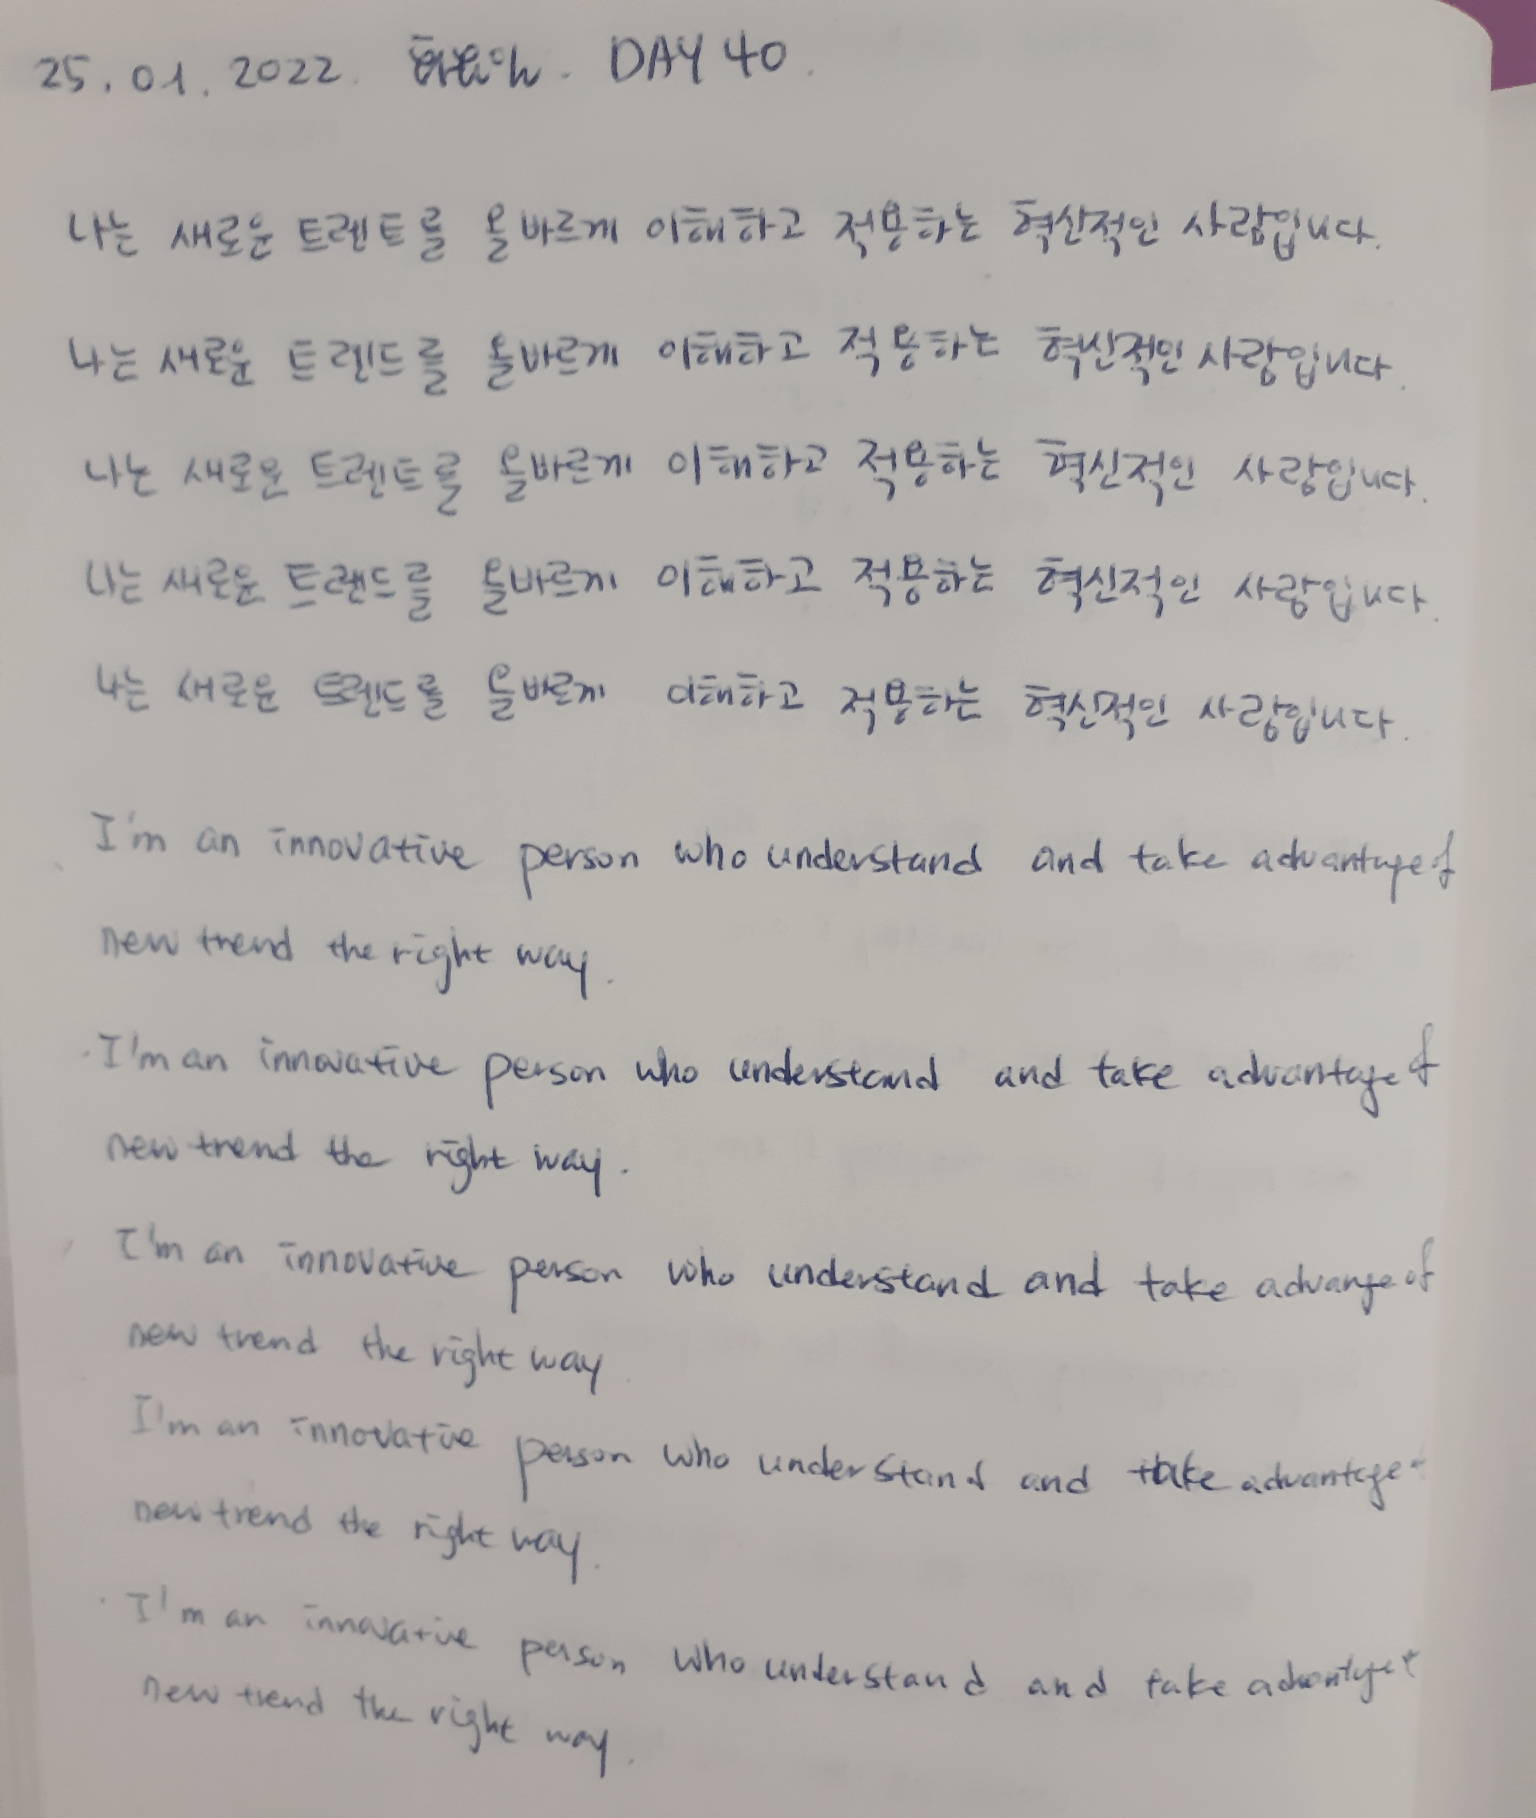 25.01.2022. 화요일. DAY 40.
나는 새로운 트렌트를 올바르게 이해하고 적용하는 혁신적인 사람입니다.
나는 새로운 트렌드를 올바르게 이해하고 적용하는 혁신적인 사람입니다.
나는 새로운 트렌트를 올바르게 이해하고 적용하는 혁신적인 사람입니다.
나는 새로운 트랜드를 올바르게 이해하고 적용하는 혁신적인 사람입니다.
나는 새로운 트렌드를 올바르게 이해하고 적용하는 혁신적인 사람입니다.
I'm an innovative person who understand and take advantage of
new trend the right way.
I'm an innovative person who understand and take advantage of
new trend the right way.
I'm an innovative person who understand and take advange of
new trend the right way.
I'm an innovative person who understand and take advantage
new trend the right way.
I'm an innovative person who understand and take advantage
new trend the right way.